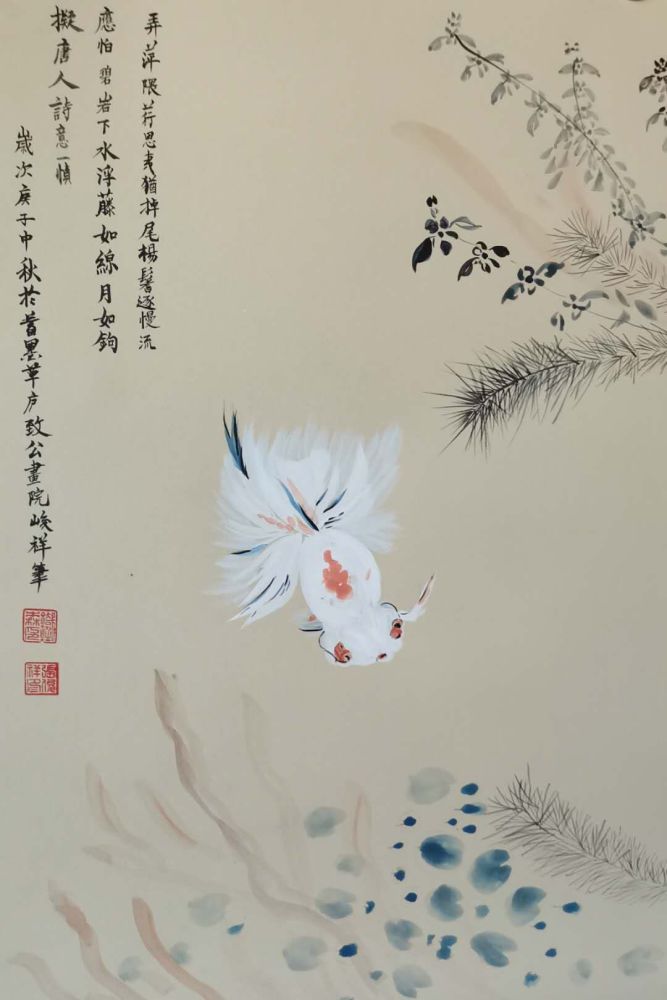 弄萍隈荇思夷猶掉尾楊鬐逐慢流
應怕碧岩下水浮藤如線月如鉤
擬唐人詩意一幀
歲次庚子中秋於蒼墨草庐致公畫院峻祥筆